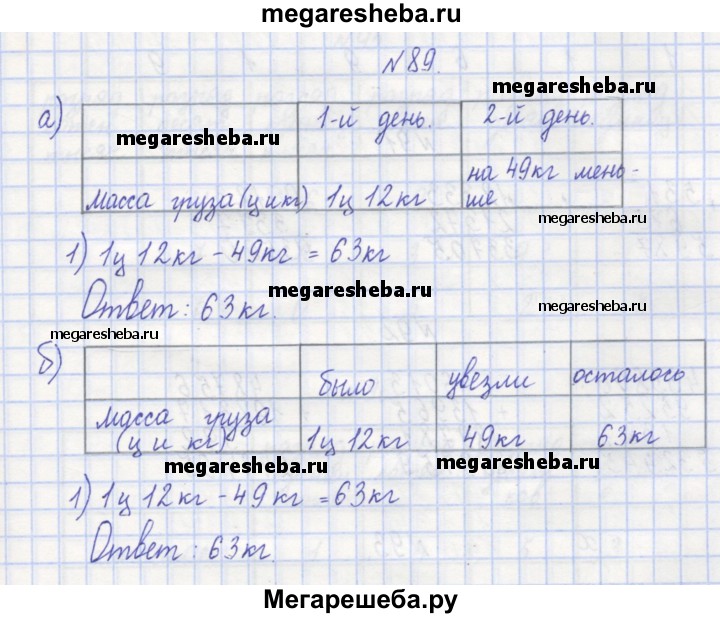 megaresheba.ru
№89.
megaresheba.ru
а)
1-й день. 2-й день.
megaresheba.ru
масса груза (ц и кг) 1ц 12кг на 49кг мень-
ше
megaresheba.ru
1) 1ц 12кг - 49кг = 63кг
megaresheba.ru
Ответ: 63кг.
megaresheba.ru
megaresheba.ru
б)
было увезли осталось
масса груза
(ц и кг) 1ц 12кг 49кг 63кг
megaresheba.ru megaresheba.ru
1) 1ц 12кг - 49кг = 63кг
Ответ: 63кг.
Мегарешеба.ру